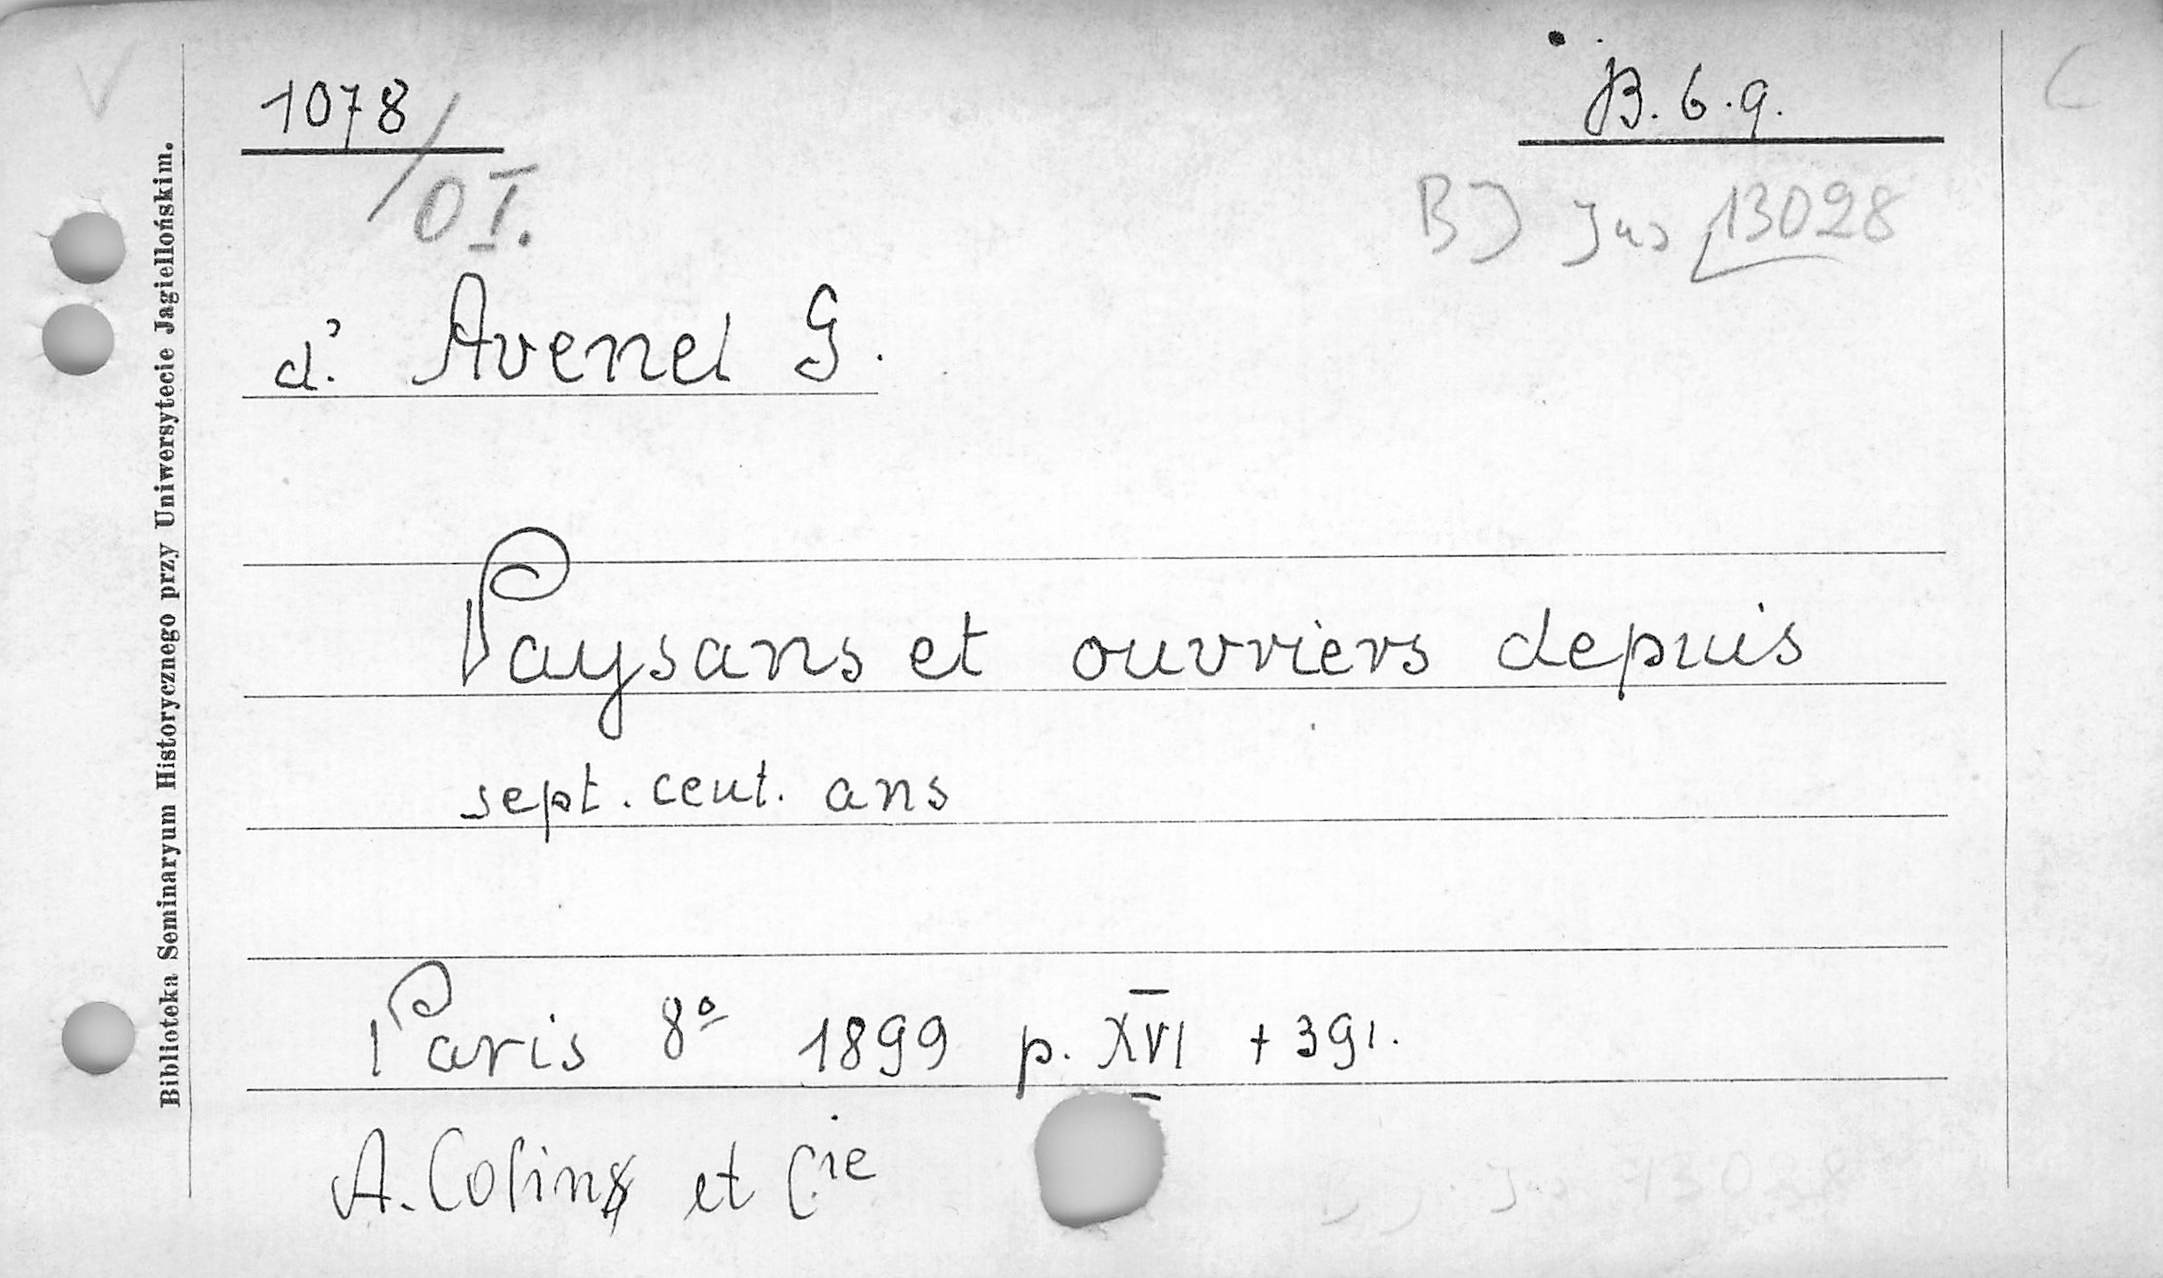 1078
/OI.
B. 6. 9.
BJ Jus 13028
d'. Avenel G.
Paysans et ouvriers depuis
sept. cent. ans
Paris 8º 1899 p. XVI + 391.
A. Colin et Cie
BJ. Jus 13028
Biblioteka Seminaryum Historycznego przy Uniwersytecie Jagiellońskim.